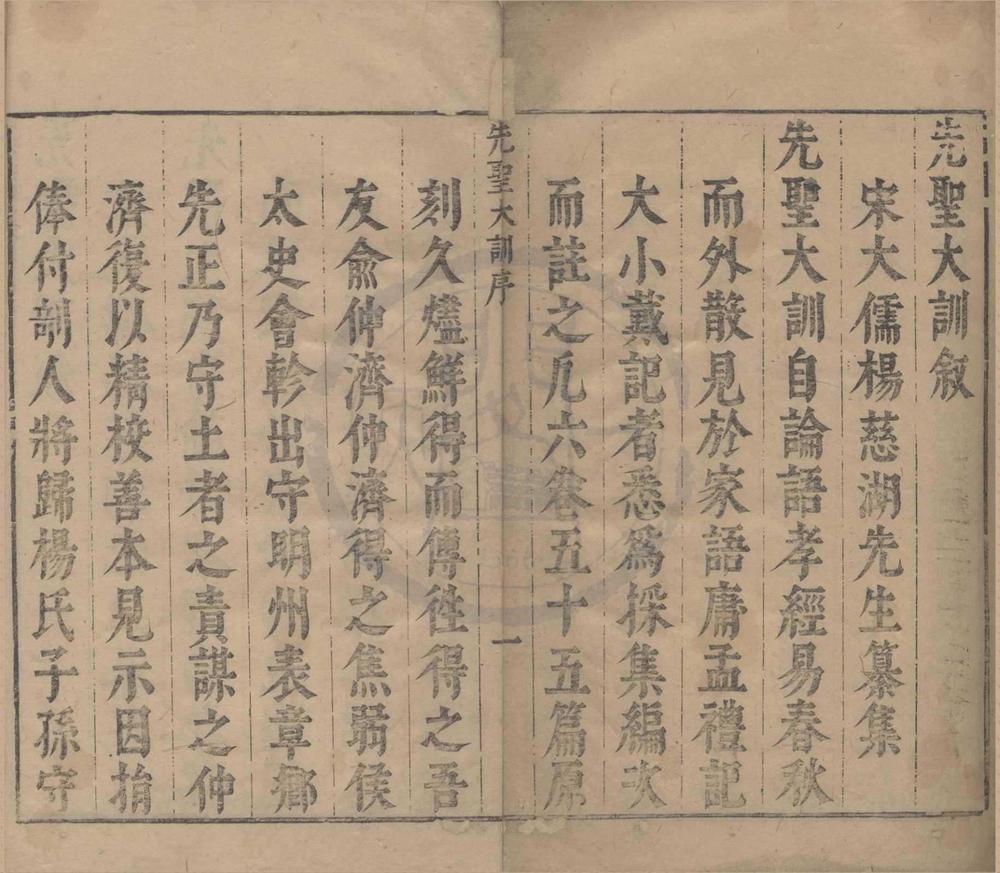 先聖大訓敘
宋大儒楊慈湖先生纂集
先聖大訓自論語孝經易春秋
而外散見於家語庸孟禮記
大小戴記者悉爲採集編次
而註之凡六卷五十五篇原
先聖大訓序
一
刻久燼鮮得而傳徃得之吾
友兪仲濟仲濟得之焦弱侯
太史會幹出守明州表章鄉
先正乃守土者之責謀之仲
濟復以精校善本見示因捐
俸付剞人將歸楊氏子孫守